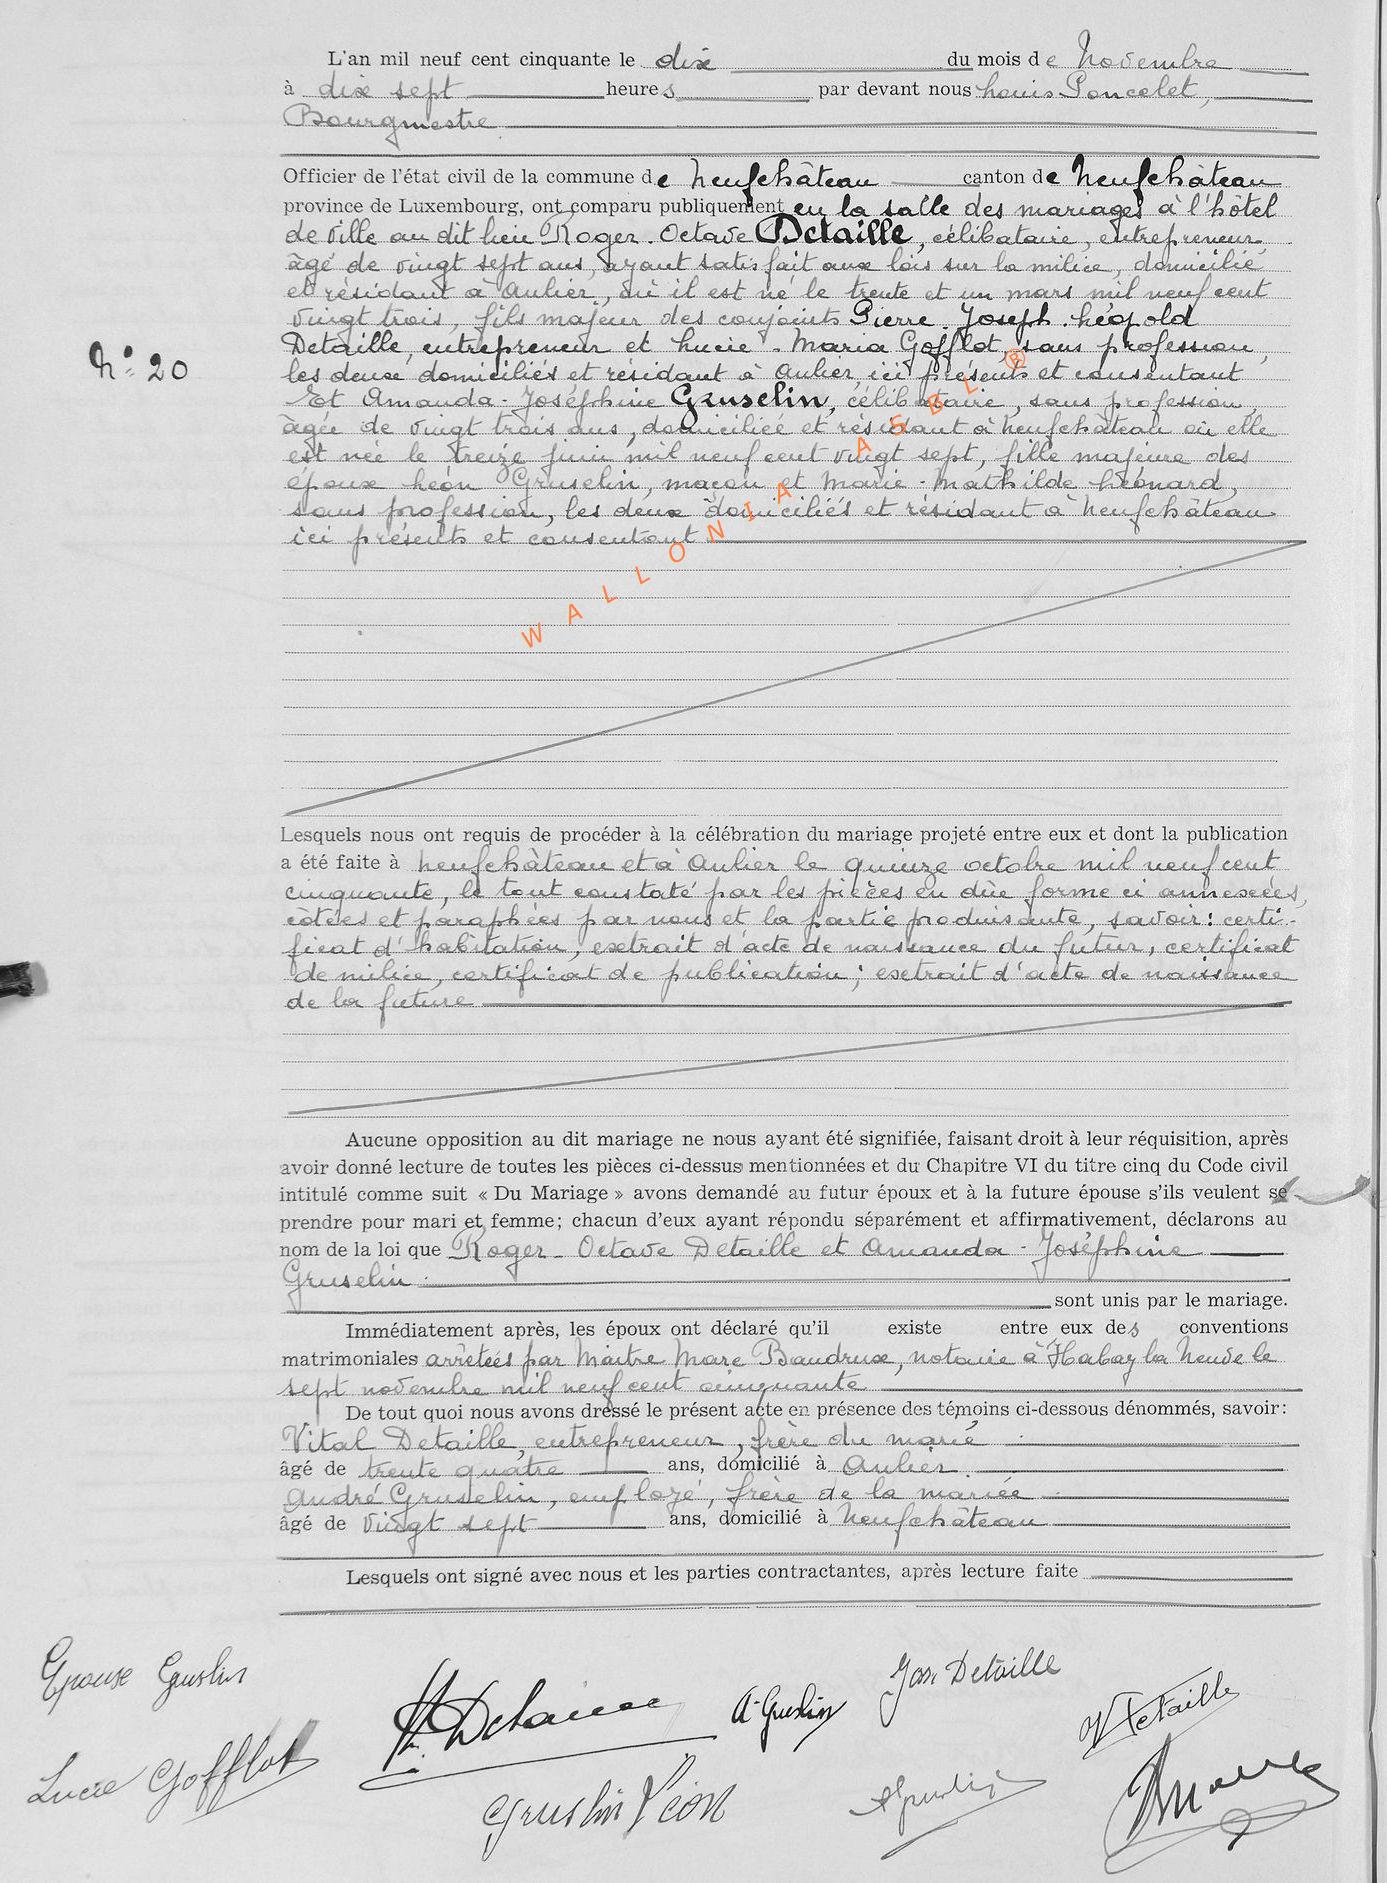 L'an mil neuf cent cinquante le dix du mois de Novembre
à dix sept heures par devant nous Louis Poncelet,
Bourgmestre
Officier de l'état civil de la commune de Neufchâteau canton de Neufchâteau
province de Luxembourg, ont comparu publiquement en la salle des mariages à l'hôtel
de ville au dit lieu Roger-Octave Detaille, célibataire, entrepreneur,
âgé de vingt sept ans, ayant satisfait aux lois sur la milice, domicilié
et résidant à Anlier, où il est né le trente et un mars mil neuf cent
vingt trois, fils majeur des conjoints Pierre-Joseph-Léopold
Detaille, entrepreneur et Lucie-Maria Gofflot, sans profession,
les deux domiciliés et résidant à Anlier, ici présents et consentant
N° 20
Et Amanda-Joséphine Gruselin, célibataire, sans profession,
âgée de vingt trois ans, domiciliée et résidant à Neufchâteau où elle
est née le treize juin mil neuf cent vingt sept, fille majeure des
époux Léon Gruselin, maçon et Marie-Mathilde Léonard,
sans profession, les deux domiciliés et résidant à Neufchâteau
ici présents et consentant
WALLONIA ASBL ®
Lesquels nous ont requis de procéder à la célébration du mariage projeté entre eux et dont la publication
a été faite à Neufchâteau et à Anlier le quinze octobre mil neuf cent
cinquante, le tout constaté par les pièces en due forme ci annexées,
côtées et paraphées par nous et la partie produisante, savoir: certi-
ficat d'habitation, extrait d'acte de naissance du futur, certificat
de milice, certificat de publication; extrait d'acte de naissance
de la future
Aucune opposition au dit mariage ne nous ayant été signifiée, faisant droit à leur réquisition, après
avoir donné lecture de toutes les pièces ci-dessus mentionnées et du Chapitre VI du titre cinq du Code civil
intitulé comme suit « Du Mariage » avons demandé au futur époux et à la future épouse s'ils veulent se
prendre pour mari et femme; chacun d'eux ayant répondu séparément et affirmativement, déclarons au
nom de la loi que Roger-Octave Detaille et Amanda-Joséphine
Gruselin
sont unis par le mariage.
Immédiatement après, les époux ont déclaré qu'il existe entre eux des conventions
matrimoniales arrêtées par Maitre Marc Baudrux, notaire à Habay la Neuve le
sept novembre mil neuf cent cinquante
De tout quoi nous avons dressé le présent acte en présence des témoins ci-dessous dénommés, savoir:
Vital Detaille, entrepreneur, frère du marié
âgé de trente quatre ans, domicilié à Anlier
André Gruselin, employé, frère de la mariée
âgé de vingt sept ans, domicilié à Neufchâteau
Lesquels ont signé avec nous et les parties contractantes, après lecture faite
Epouse Gruslin
Detaille
A. Gruslin
Jos. Detaille
V Detaille
Lucie Gofflot
Gruslin Léon